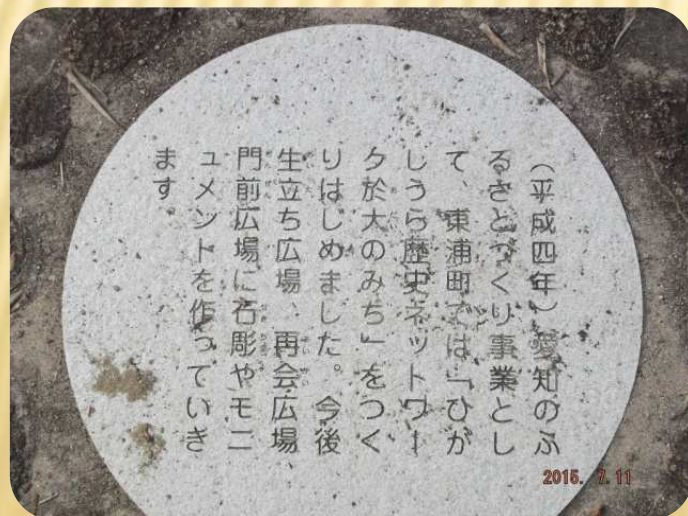 （平成四年）愛知のふ
るさとづくり事業とし
て、東浦町では「ひが
しうら歴史ネットワー
ク於大のみち」をつく
りはじめました。今後
生立ち広場、再会広場、
門前広場に石彫やモニ
ュメントを作っていき
ます。
2015. 7.11